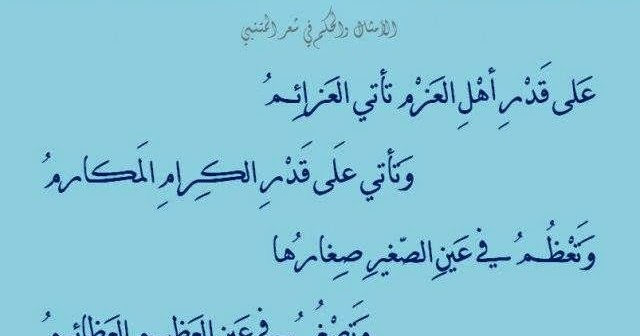 الأمثال والحكم في شعر المتنبي
عَلى قَدْرِ أهْلِ العَزْم تأتي العَزائِمُ
وَتأتي علَى قَدْرِ الكِرامِ المَكارمُ
وَتَعْظُمُ في عَينِ الصّغيرِ صِغارُها
وَتَصْغُرُ في عَين العَظيمِ العَظائِمُ